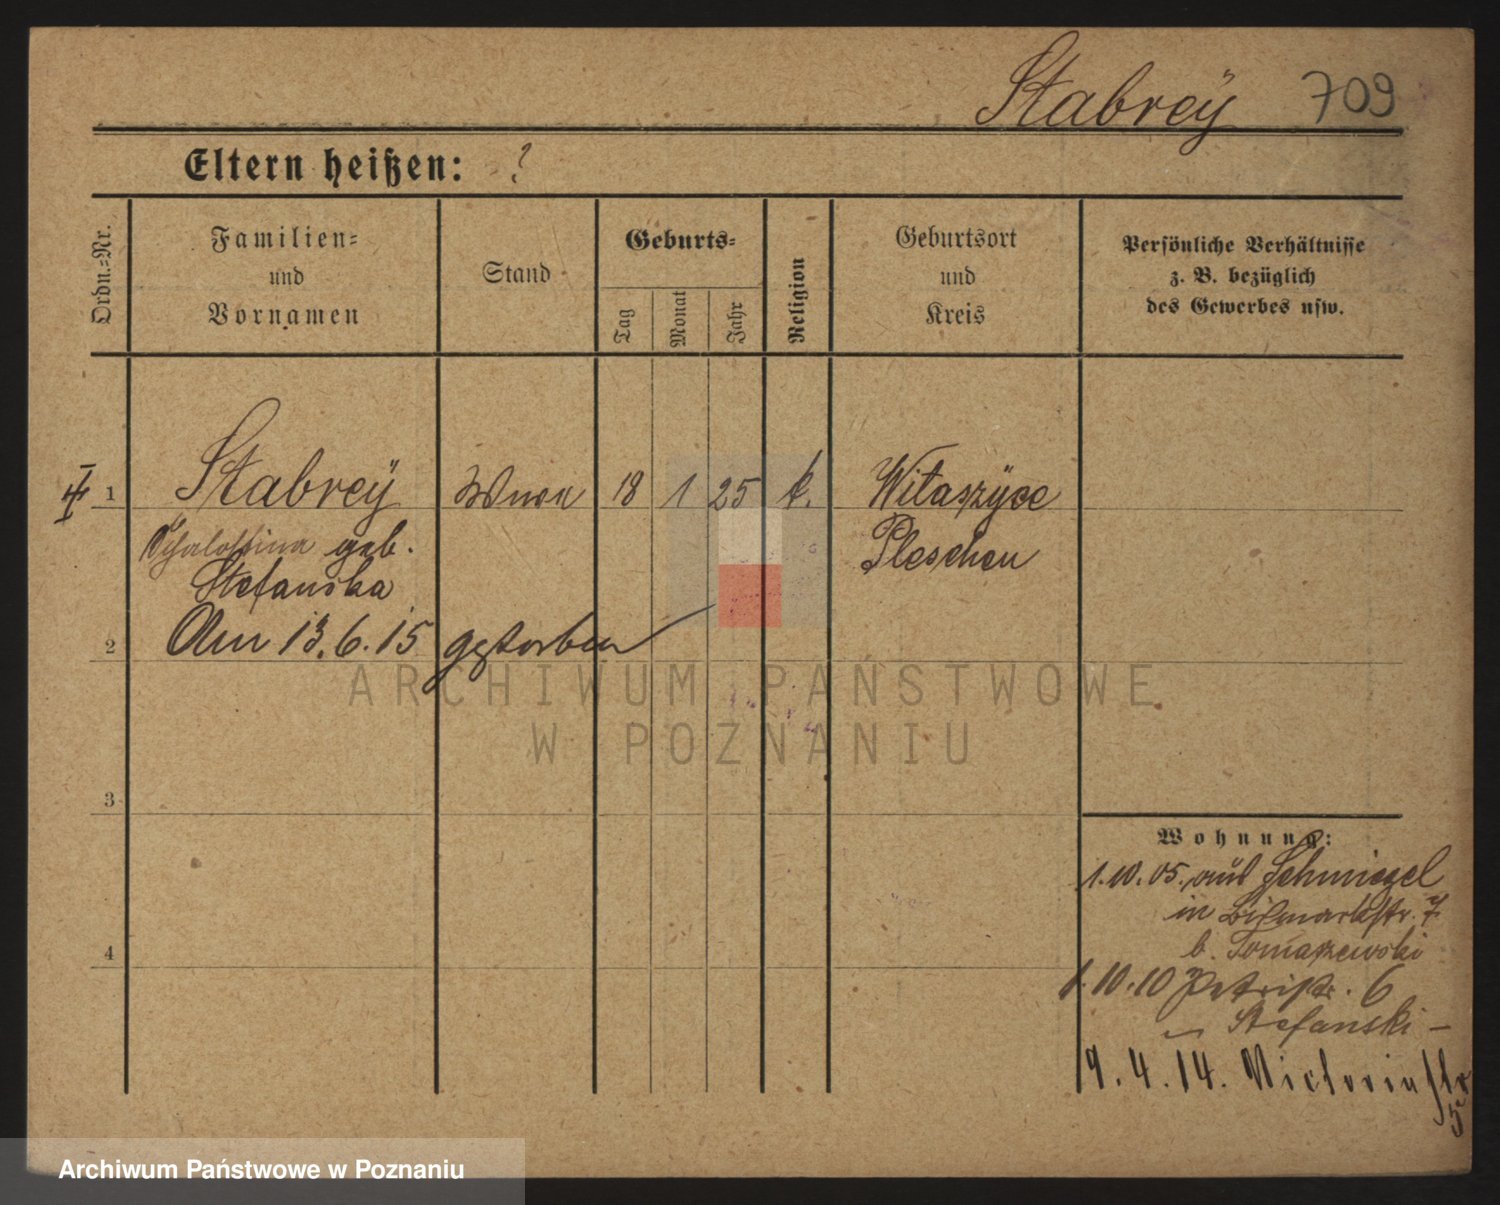 Stabreÿ 709
Eltern heißen: ?
Ordn.-Nr.
Familien-
und
Vornamen
Stand
Geburts-
Tag
Monat
Jahr
Religion
Geburtsort
und
Kreis
Persönliche Verhältnisse
z. B. bezüglich
des Gewerbes usw.
1 Stabreÿ 18 1 25 k. Witaszÿce
geb. Pleschen
Stefanska
2 Am 13.6.15 gestorben
3
4
Wohnung:
1.10.05. aus Schmiegel
in Bismarckstr. 7
b. Tomaszewski
1.10.10 Petristr. 6
Stefanski
9.4.14. Victoriastr
5
ARCHIWUM PAŃSTWOWE
W POZNANIU
Archiwum Państwowe w Poznaniu